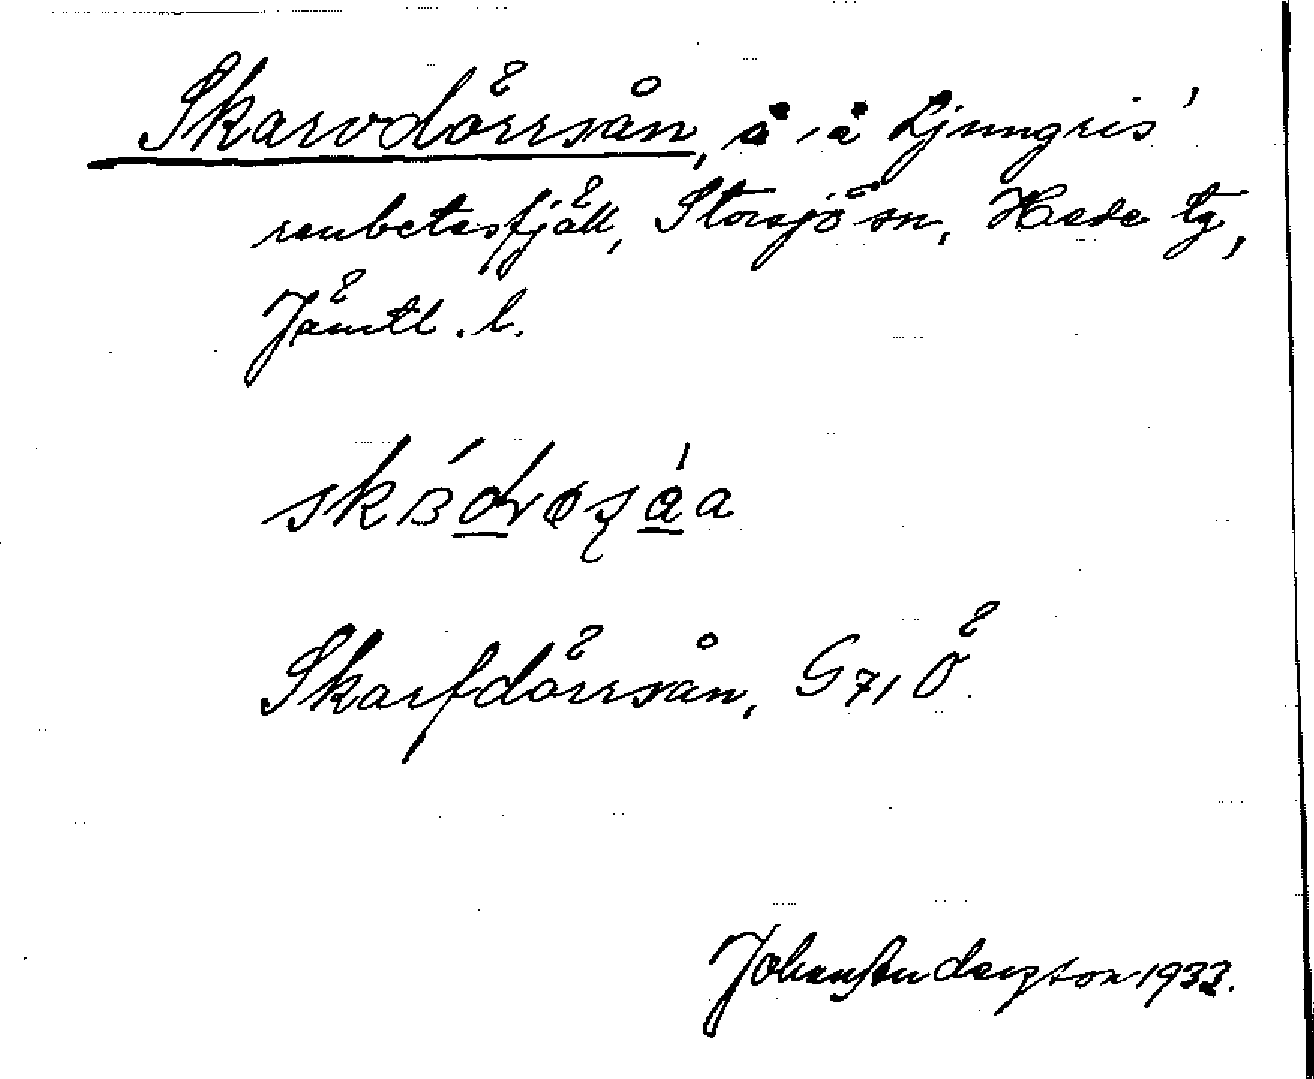 Skarvdörrsån, å å Ljungris'
renbetesfjäll, Storsjö sn, Hede tg,
Jämtl. l.
Skarfdörrsån, G 71 Ö.
Johan Anderzson 1932.